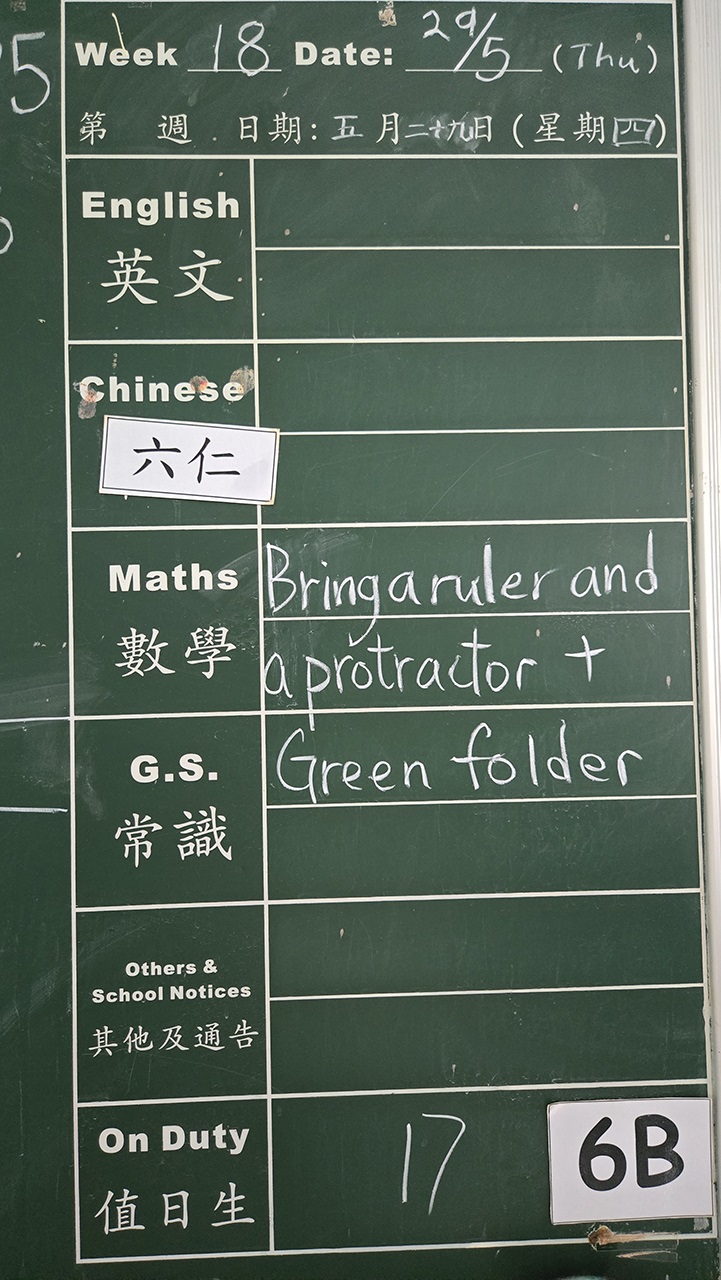 Week 18 Date: 29/5 (Thu)
第 週 日期: 五月二十九日 (星期四)
English
英文
Chinese
六仁
Maths
Bring a ruler and
數學
a protractor +
G.S.
Green folder
常識
Others &
School Notices
其他及通告
On Duty
17
6B
值日生